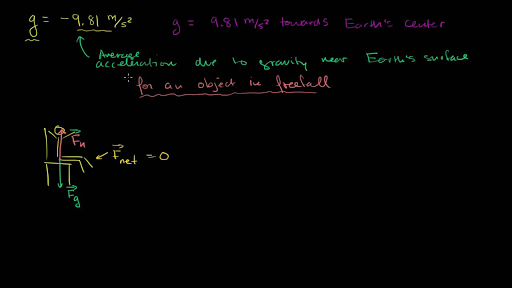 g = -9.81 m/s² g = 9.81 m/s² towards Earth's center
Average
acceleration due to gravity near Earth's surface
for an object in freefall
Fn
Fnet = 0
Fg